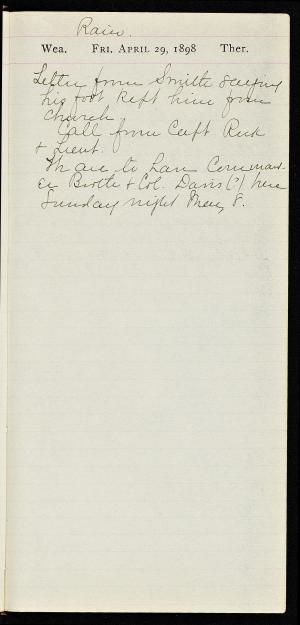 Rain.
Wea. FRI. APRIL 29, 1898 Ther.
Letter from Smith saying
his foot kept him from
church
Call from Capt Rusk
& Lieut.
We are to have Command-
er Booth & Col. Davis (?) here
Sunday night May 8.